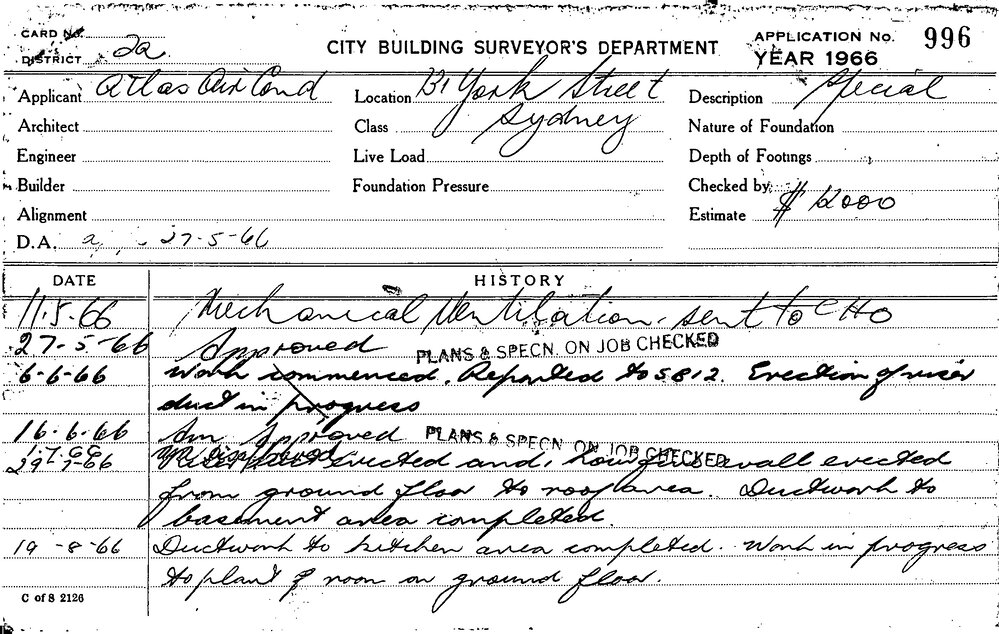 CARD No.
DISTRICT 2a
CITY BUILDING SURVEYOR'S DEPARTMENT
APPLICATION No. 996
YEAR 1966
Applicant Atlas Air Cond
Location 131 York Street
Sydney
Description Special
Architect
Class
Nature of Foundation
Engineer
Live Load
Depth of Footings
Builder
Foundation Pressure
Checked by
Alignment
Estimate $ 12000
D.A. a 27-5-66
DATE
HISTORY
11.5.66 Mechanical Ventilation. sent to CHO
27-5-66 Approved PLANS & SPECN. ON JOB CHECKED
6-6-66 Work commenced. Reported to S812. Erection of riser
duct in progress
16.6.66 Am Approved PLANS & SPECN. ON JOB CHECKED
1.7.66
29-7-66 erected and wall erected
from ground floor to roof area. Ductwork to
basement area completed.
19-8-66 Ductwork to kitchen area completed. Work in progress
to plant room on ground floor.
C of S 2126